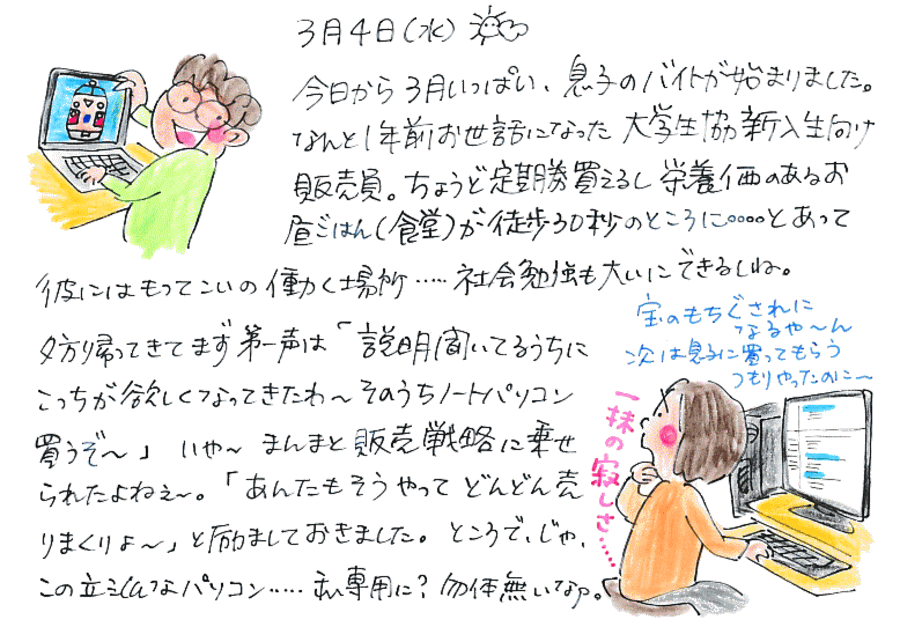 3月4日(水)
今日から3月いっぱい、息子のバイトが始まりました。
なんと1年前お世話になった大学生協新入生向け
販売員。ちょうど定期券買えるし栄養価のあるお
昼ごはん(食堂)が徒歩30秒のところに。。。。とあって
彼にはもってこいの働く場所……社会勉強も大いにできるしね。
夕方帰ってきてまず第一声は「説明聞いてるうちに
こっちが欲しくなってきたわ〜そのうちノートパソコン
買うぞ〜」いや〜まんまと販売戦略に乗せ
られたよねぇ〜。「あんたもそうやってどんどん売
りまくりよ〜」と励ましておきました。ところで、じゃ、
この立派なパソコン……私専用に?勿体無いなァ。
宝のもちぐされに
なるや〜ん
次は息子に買ってもらう
つもりやったのに〜
一抹の寂しさ……